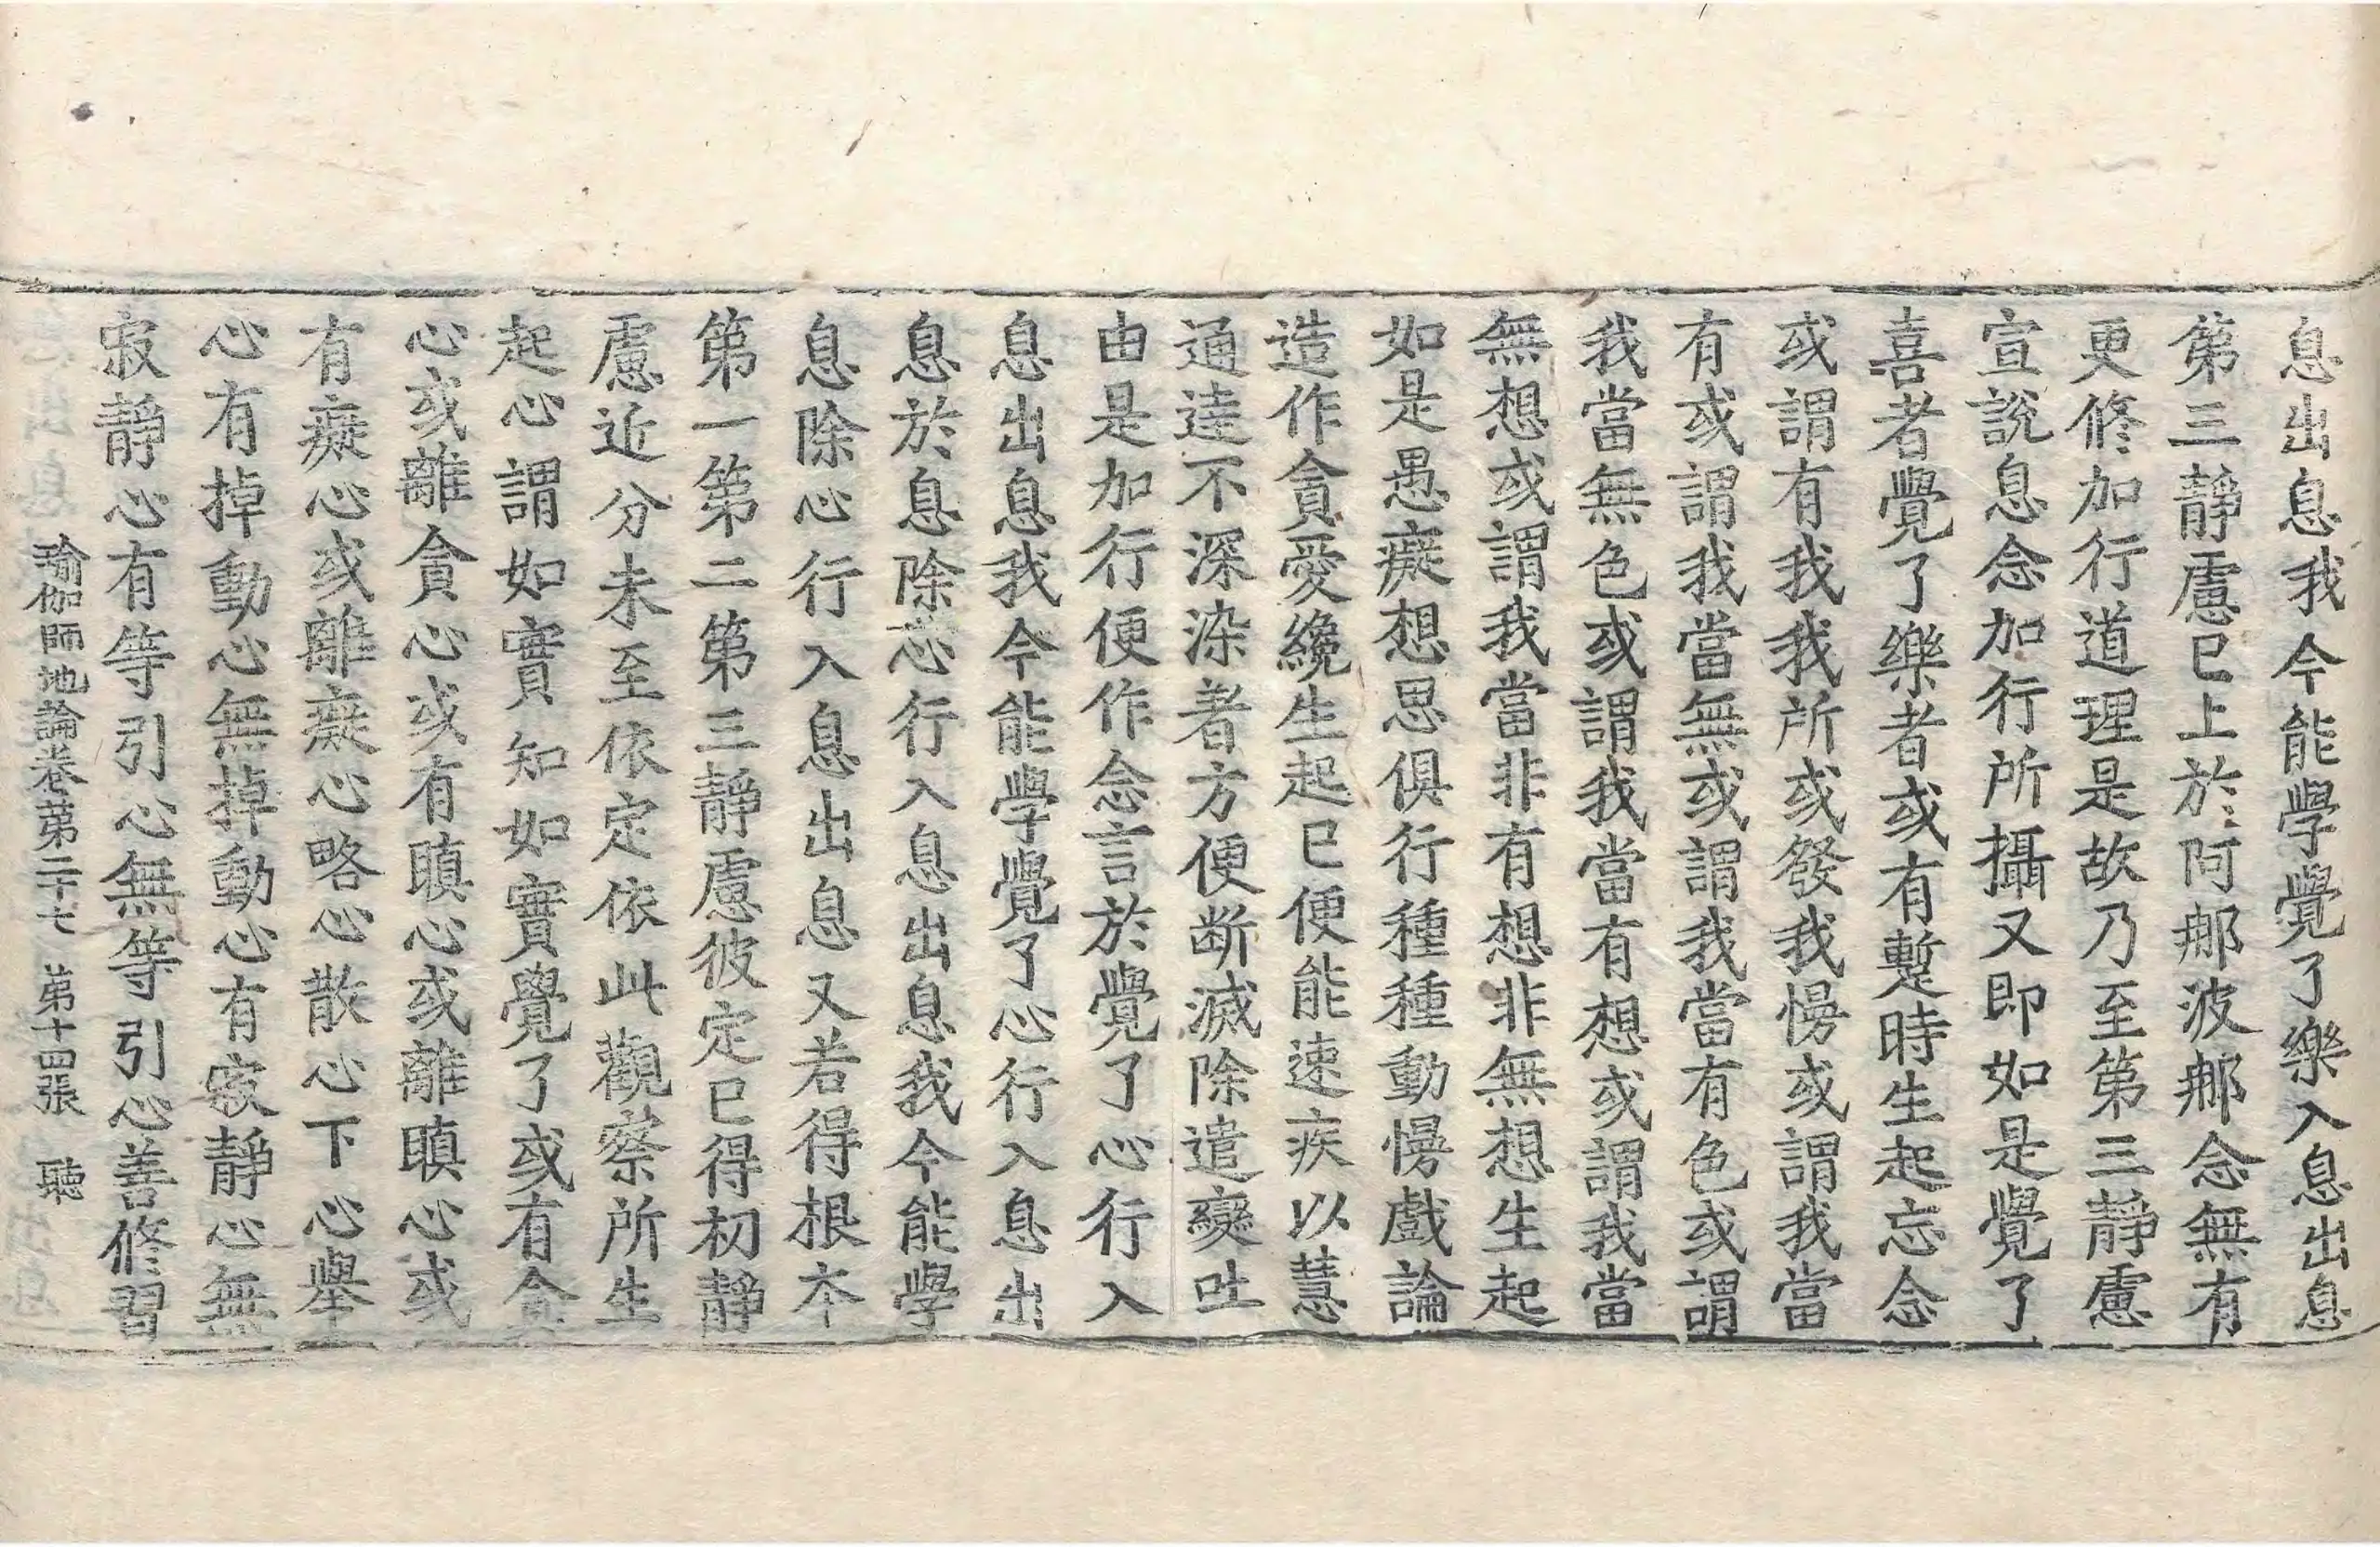 息出息我今能學覺了樂入息出息
第三靜慮已上於阿那波那念無有
更修加行道理是故乃至第三靜慮
宣說息念加行所攝又即如是覺了
喜者覺了樂者或有蹔時生起忘念
或謂有我我所或發我慢或謂我當
有或謂我當無或謂我當有色或謂
我當無色或謂我當有想或謂我當
無想或謂我當非有想非無想生起
如是愚癡想思俱行種種動慢戲論
造作貪愛纔生起已便能速疾以慧
通達不深染著方便断滅除遣變吐
由是加行便作念言於覺了心行入
息出息我今能學覺了心行入息出
息於息除心行入息出息我今能學
息除心行入息出息又若得根夲
第一第二第三靜慮彼定已得初靜
慮近分未至依定依此觀察所生
起心謂如實知如實覺了或有貪
心或離貪心或有瞋心或離瞋心或
有癡心或離癡心略心散心下心舉
心有掉動心無掉動心有寂靜心無
寂靜心有等引心無等引心善修習
瑜伽師地論卷第二十七 第十四張 聽